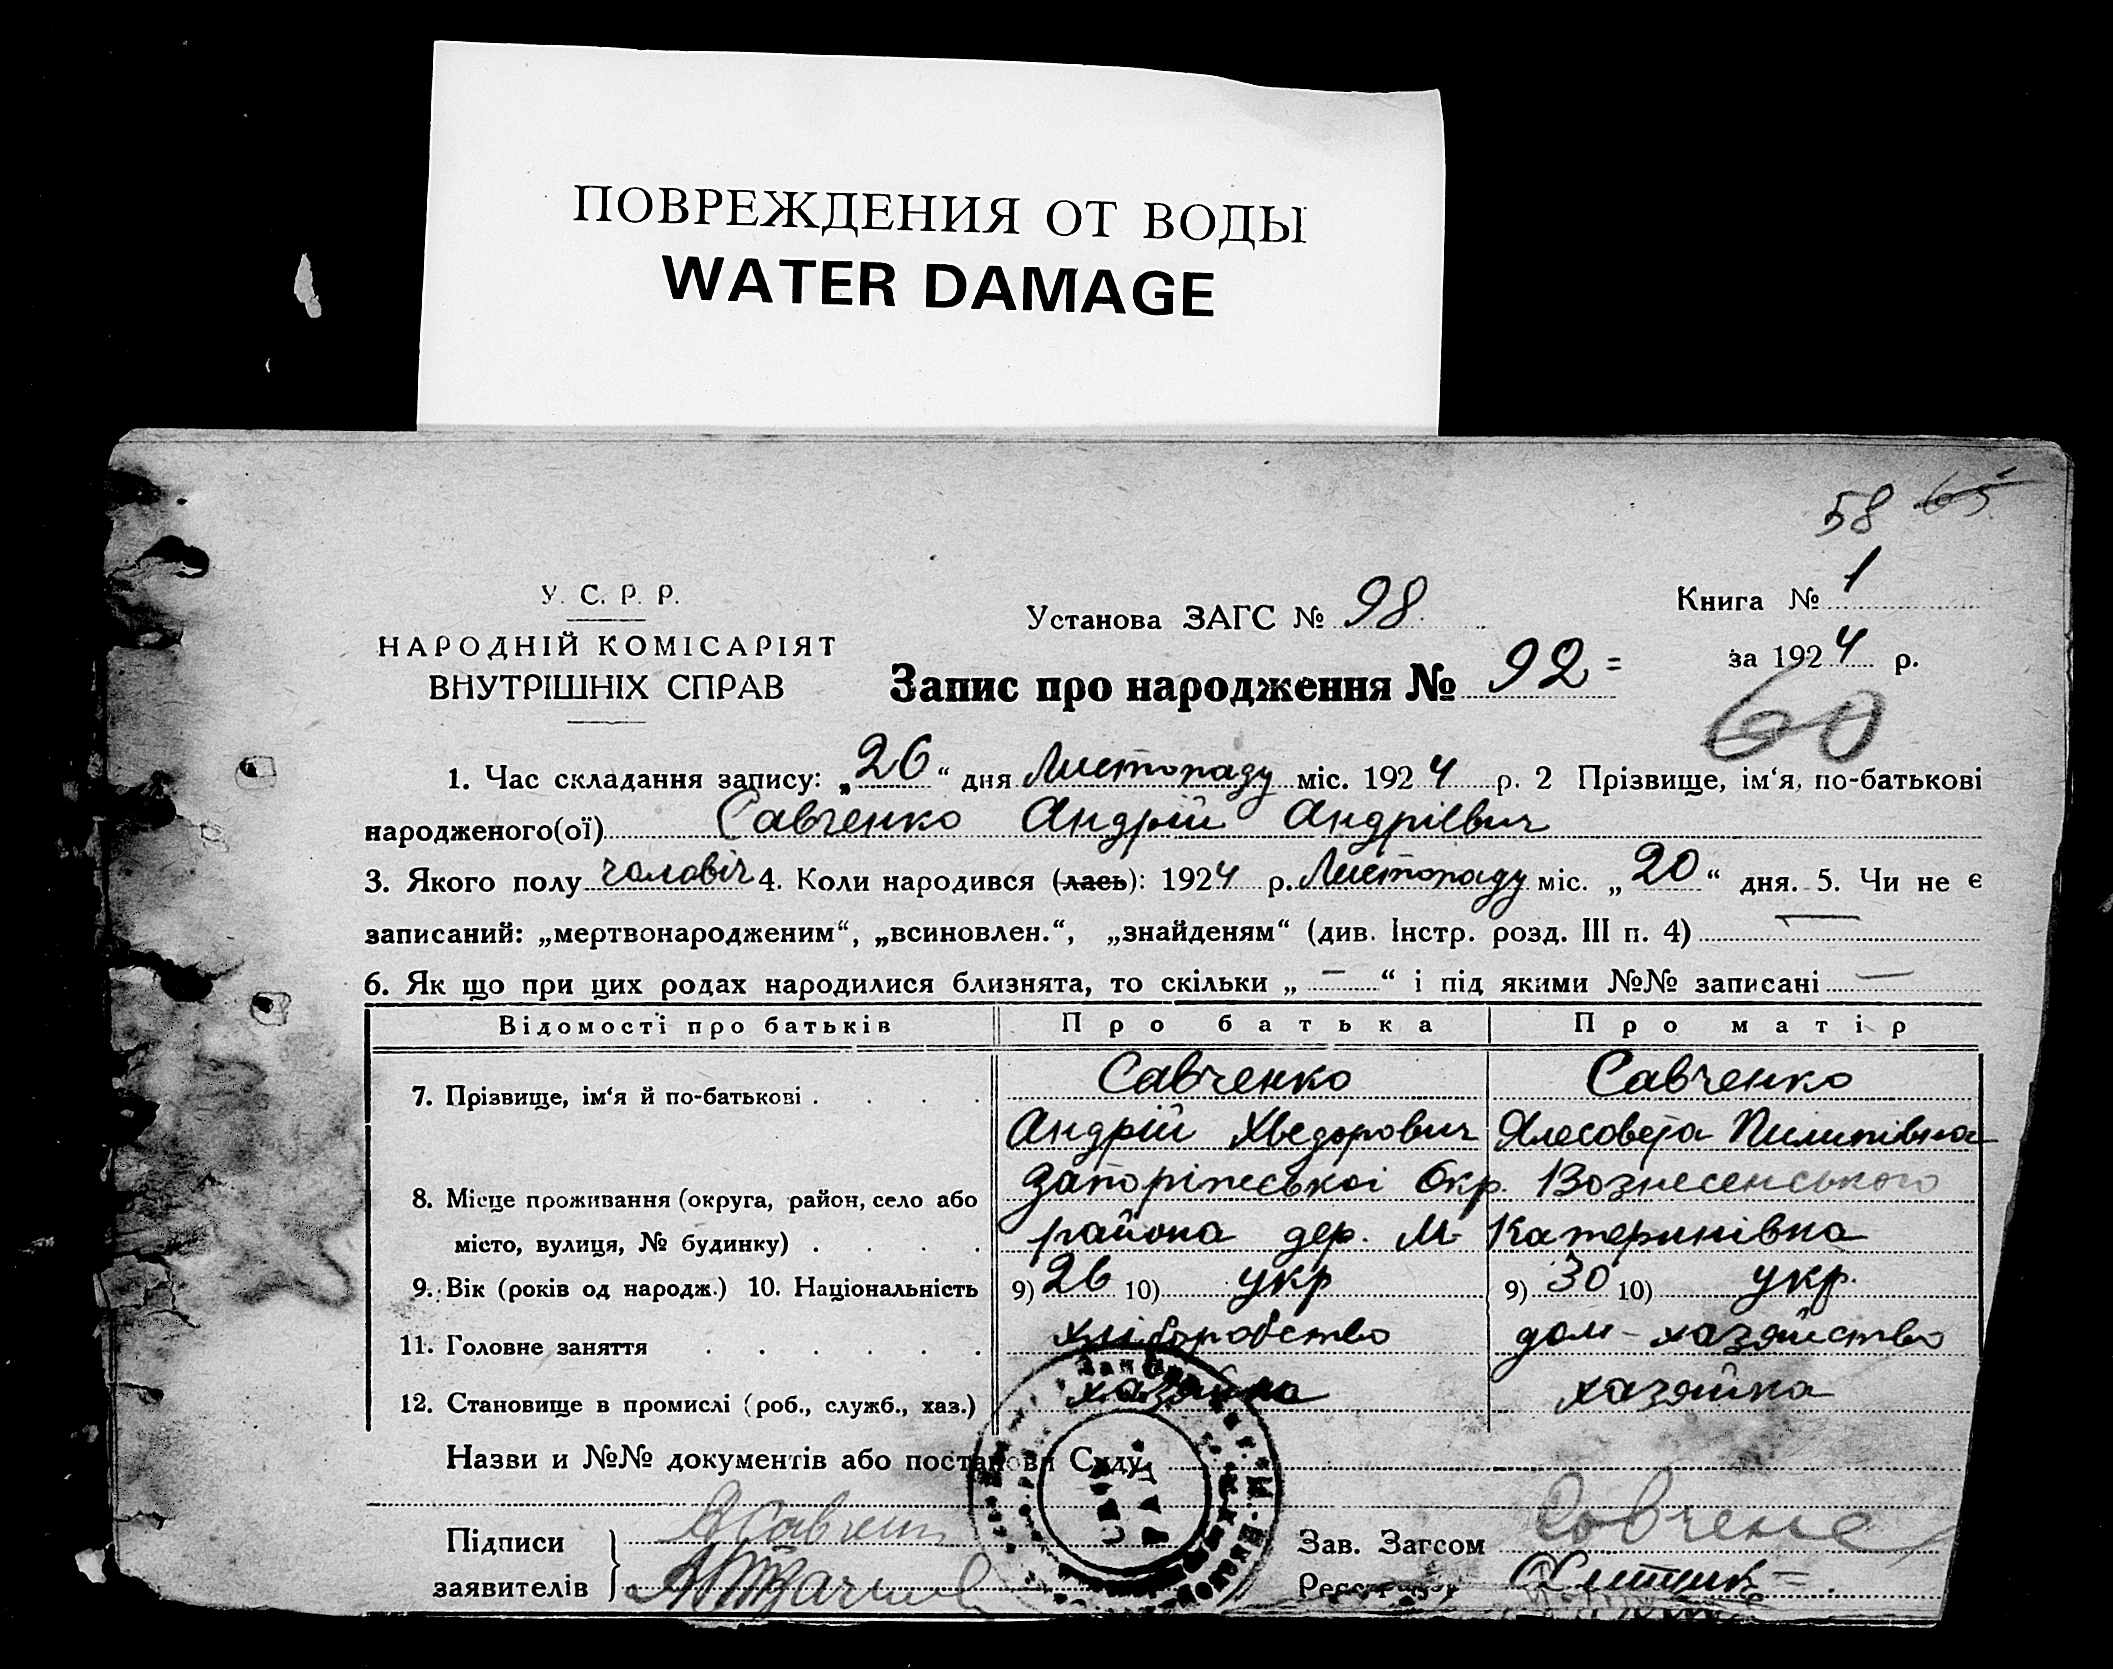 ПОВРЕЖДЕНИЯ ОТ ВОДЫ
WATER DAMAGE
58 65
У. С. Р. Р.
НАРОДНІЙ КОМІСАРІЯТ
ВНУТРІШНІХ СПРАВ
Установа ЗАГС № 98
Книга № 1
за 1924 р.
Запис про народження № 92=
60
1. Час складання запису: „26“ дня Листопаду міс. 1924 р. 2 Прізвище, ім‘я, по-батькові
народженого(ої) Савченко Андрій Андрієвич
3. Якого полу чоловіч 4. Коли народився (лась): 1924 р. Листопаду міс. „20“ дня. 5. Чи не є
записаний: „мертвонародженим“, „всиновлен.“, „знайденям“ (див. Інстр. розд. III п. 4) —
6. Як що при цих родах народилися близнята, то скільки „ — “ і під якими №№ записані —
Відомості про батьків Про батька Про матір
7. Прізвище, ім‘я й по-батькові . . . . Савченко Савченко
Андрій Хведорович Ялесовета Пилипівна
8. Місце проживання (округа, район, село або Запоріжської Окр. Вознесенського
місто, вулиця, № будинку) . . . . района дер. М Катеринівка
9. Вік (років од народж.) 10. Національність 9) 26 10) укр 9) 30 10) укр.
11. Головне заняття . . . . . . хліборобство дом-хозяйство
12. Становище в промислі (роб., служб., хаз.) хазяйна хазяйка
Назви и №№ документів або постанови Суду
Підписи Савченко
заявителів
Зав. Загсом Совчене